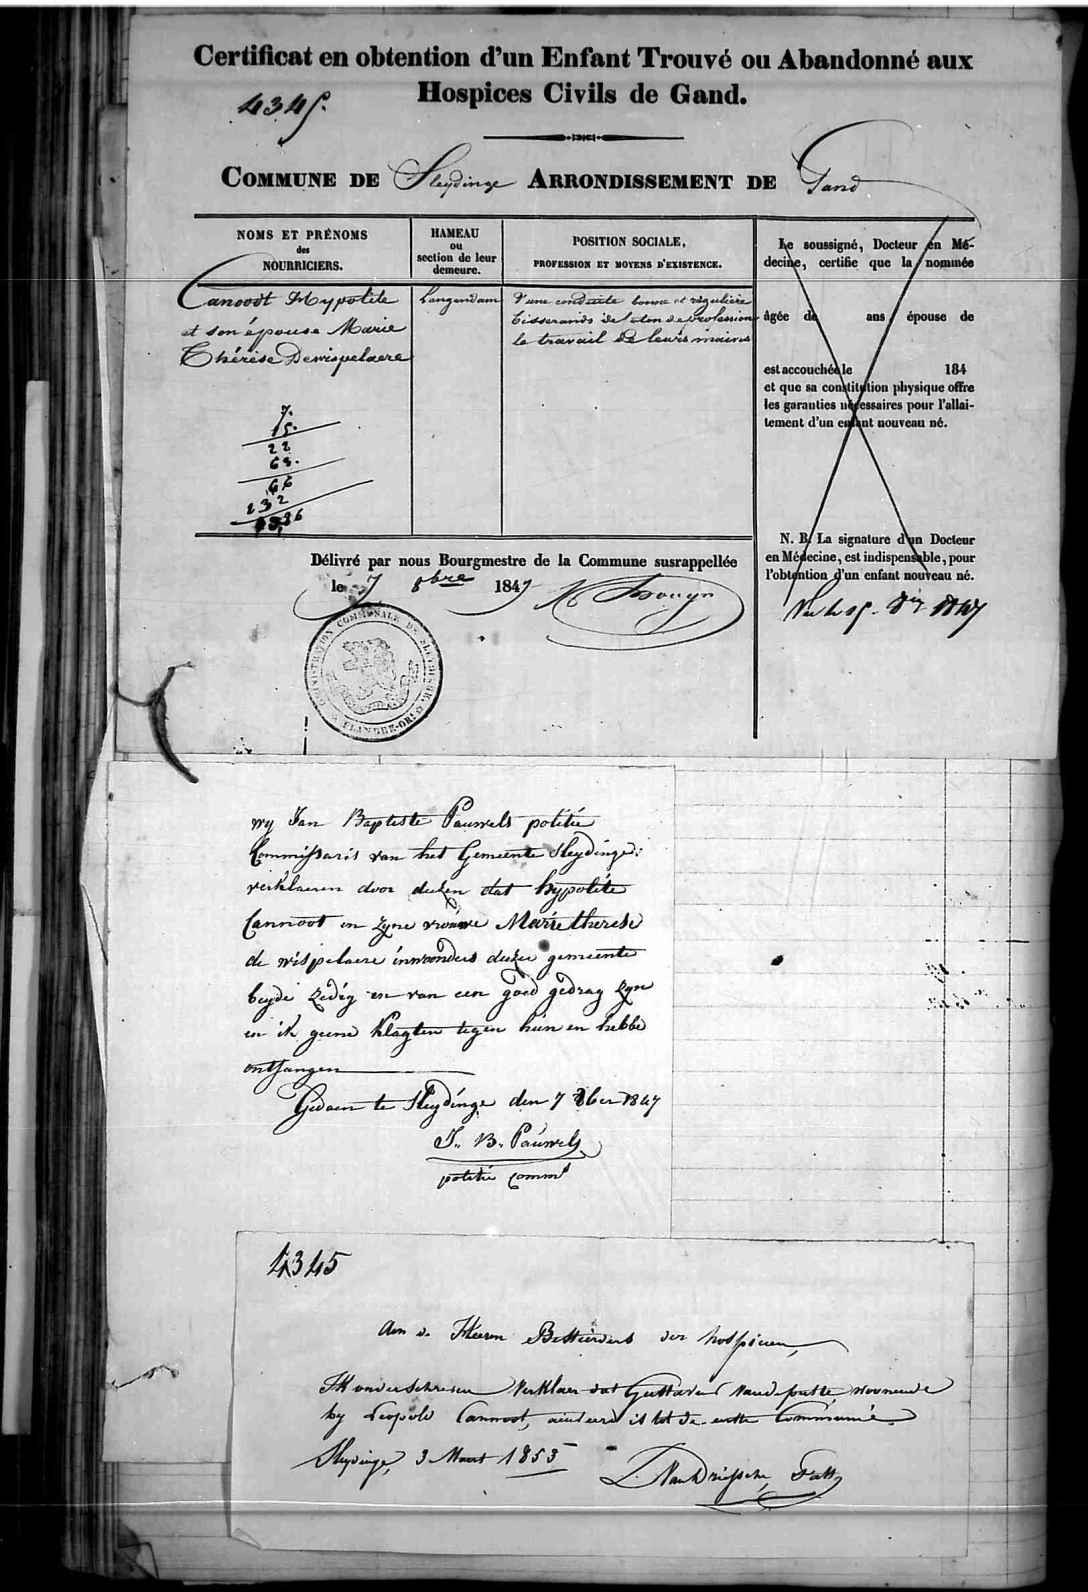 Certificat en obtention d'un Enfant Trouvé ou Abandonné aux
Hospices Civils de Gand.
4345.
COMMUNE DE Sleydinge ARRONDISSEMENT DE Gand
NOMS ET PRÉNOMS
des
NOURRICIERS.
Canoodt Hypolite
et son épouse Marie
Thérèse Dewispelaere
7.
15.
22
68.
66
232
HAMEAU
ou
section de leur
demeure.
Langendam
POSITION SOCIALE,
PROFESSION ET MOYENS D'EXISTENCE.
d'une conduite bonne et régulière
tisserands de profession
le travail de leurs mains
Le soussigné, Docteur en Mé-
decine, certifie que la nommée
âgée de ans, épouse de
est accouchée le 184
et que sa constitution physique offre
les garanties nécessaires pour l'allai-
tement d'un enfant nouveau né.
N. B. La signature d'un Docteur
en Médecine, est indispensable, pour
l'obtention d'un enfant nouveau né.
Vu le 15. 1847
Délivré par nous Bourgmestre de la Commune susrappellée
le 7 8bre 1847
ADMINISTRATION COMMUNALE DE SLEYDINGE
FLANDRE-OR.
wy Jan Baptiste Pauwels politie
Commissaris van het Gemeente Sleydinge:
verklaeren door deezen dat hypolite
Cannoot en zyne vrouwe Marie therese
de wispelaere inwonders deezer gemeente
beyde zedig en van een goed gedrag zyn
en ik geene klagten tegen hun en hebbe
ontfangen
Gedaen te Sleydinge den 7 8ber 1847
J. B. Pauwels
politie comms
4345
Aen de Heeren Bestierders der hospicien,
Ik onderschreven verklaer dat Gustavus Vandeputte, woonende
by Leopold Cannoot, is tot de eerste Communie.
Sleydinge, 3 Maert 1853
L. Van Driessche, Past